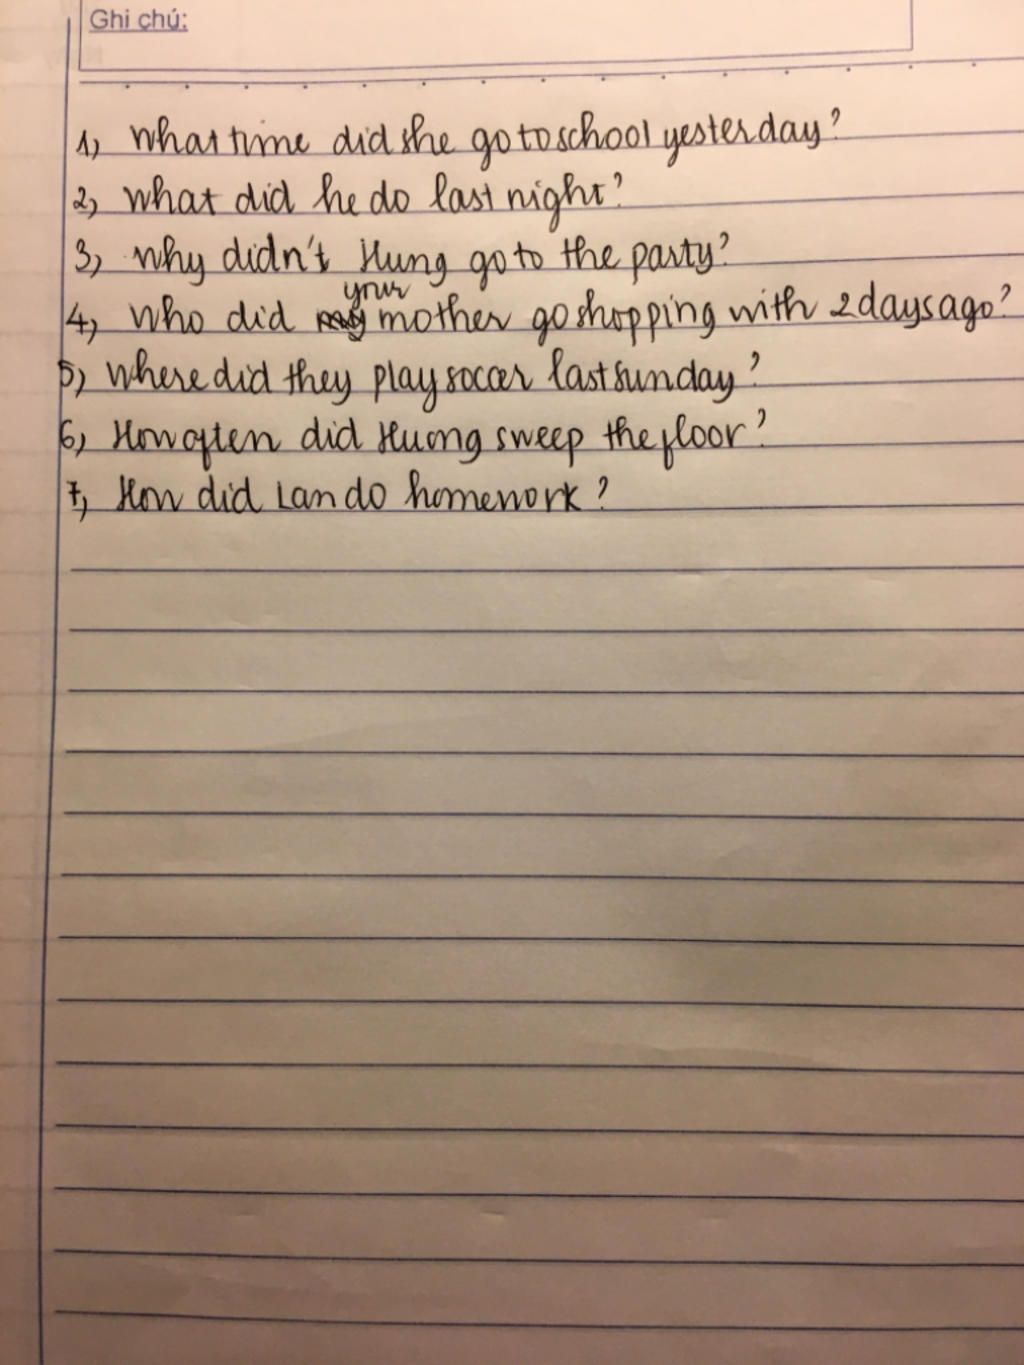 Ghi chú:
1) What time did she go to school yesterday?
2) What did he do last night?
3) Why didn't Hung go to the party?
your
4) Who did my mother go shopping with 2 days ago?
5) Where did they play soccer last sunday?
6) How often did Huong sweep the floor?
7) How did Lan do homework?